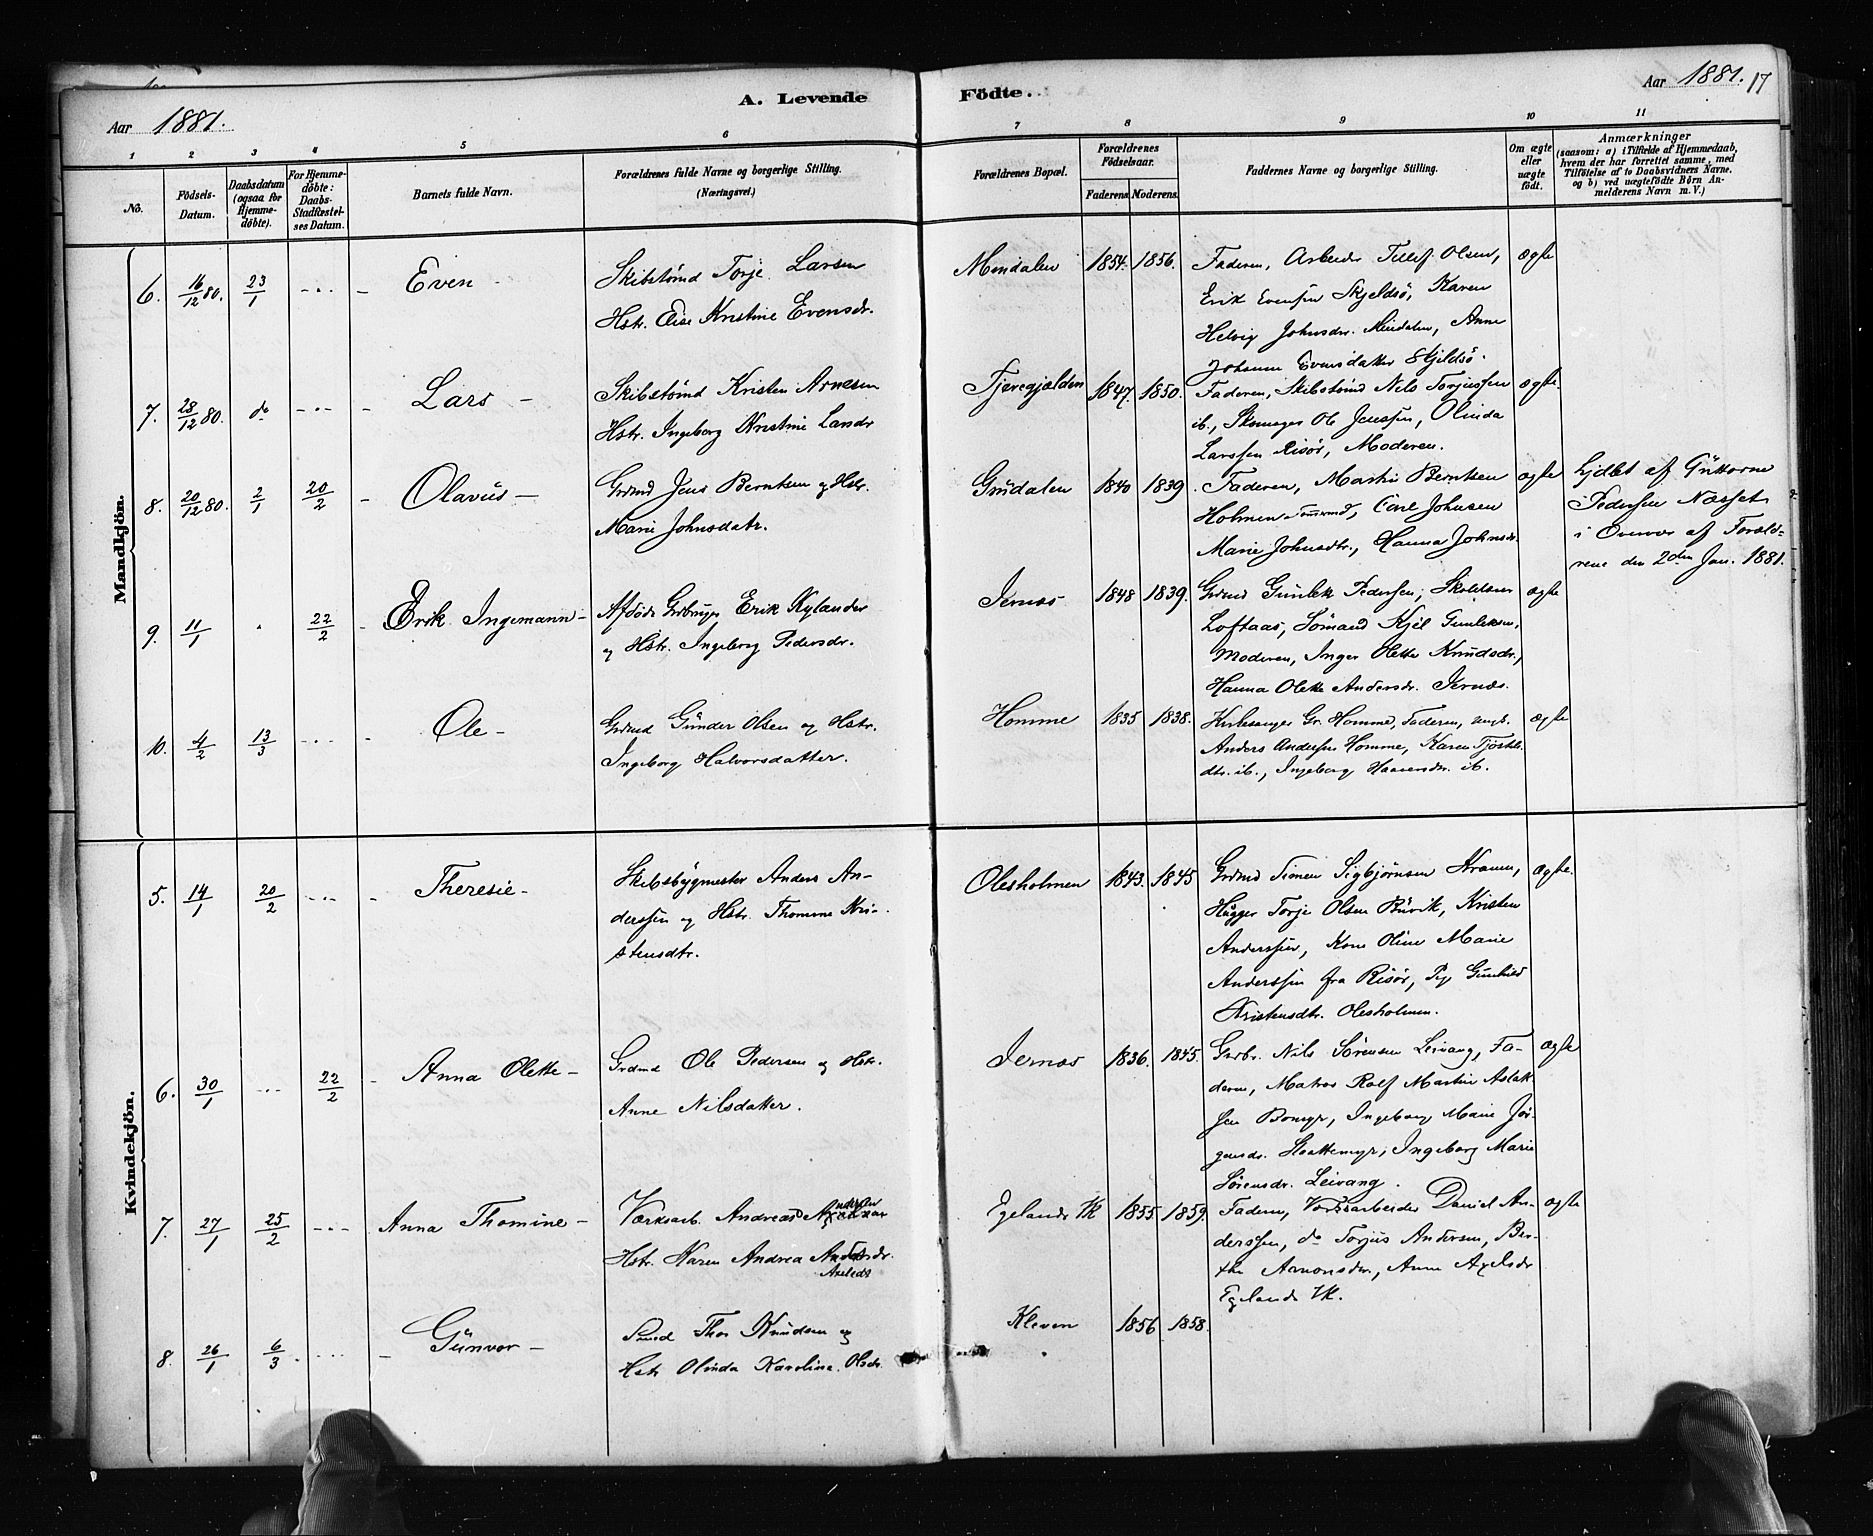 Aar 1881.
A. Levende Födte.
Aar 1881. 17
1 2 3 4 5 6 7 8 9 10 11
No.
Födsels-Datum.
Daabsdatum (ogsaa for Hjemmedøbte).
For Hjemmedøbte: Daabs-Stadfæstelses Datum.
Barnets fulde Navn.
Forældrenes fulde Navne og borgerlige Stilling. (Næringsvei.)
Forældrenes Bopæl.
Forældrenes Födselsaar.
Faderens. Moderens.
Faddernes Navne og borgerlige Stilling.
Om ægte eller uægte født.
Anmærkninger
(saasom: a) i Tilfælde af Hjemmedaab, hvem der har forrettet samme, med Tilföielse af to Daabsvidners Navne. og b) ved uægtefödte Börn Anmelderens Navn m. V.)
Mandkjön.
6. 16/12 80. 23/1 Even
Skibstømd Torje Larsen
Hstr. Elise Kristine Evensdr.
Mindalen 1854. 1856.
Faderen, Arbeider Tellef Olsen,
Erik Evensen Skjeldsö, Karen
Helvig Johnsdr. Mindalen, Anne
Johanne Evensdatter Skjeldsö.
ægte
7. 28/12 80. do Lars –
Skibstømd Kristen Arnesen
Hstr. Ingeborg Kristine Larsdr
Tjeregjælden 1847. 1850.
Faderen, Skibstømd Nils Torjussen
ib., Skomager Ole Jenssen, Olinda
Larssen Risör, Moderen.
ægte
8. 20/12 80. 2/1 20/2 Olavus –
Grdmd Jens Berntsen og Hstr.
Marie Johnsdatr.
Grudalen 1840 1839.
Faderen, Martin Berntsen
Holmen Tømmd, Carl Johnsen
Marie Johnsdtr., Hanna Johnsdr.
ægte
Hjdbt af Guttorm
Pedersen Næsset
i Overvær af Foræld-
rene den 2den Jan. 1881.
9. 11/1 22/2 Erik Ingemann –
Afdöde Grdbruger Erik Kylander
og Hstr. Ingeborg Pedersdr.
Jernæs 1848 1839.
Grdmd Gunlek Pedersen,
Loftaas, Sömand Kjel Gunleksen,
Moderen, Inger Olette Knudsdr.,
Hanna Olette Andersdr. Jernæs.
ægte
10. 4/2 13/3 Ole –
Grdmd Gunder Olsen og Hstr.
Ingeborg Halvorsdatter.
Homme 1835 1838.
Kirkesanger Gr. Homme, Faderen, ungk.
Anders Andersen Homme, Karen
dtr. ib., Ingeborg ib.
ægte
Kvindekjön.
5. 14/1 20/2 Theresie –
Skibsbygmester Anders An-
derssen og Hstr. Thomine Kri-
stensdtr.
Olesholmen 1843. 1845
Grdmd Simen Sigbjørnsen
Hugger Torje Olsen Buvik, Kristen
Anderssen, Kone Oline Marie
Anderssen fra Risör, Pig Gunhild
Kristensdtr. Olesholmen.
ægte.
6. 30/1 22/2 Anna Olette –
Grdmd Ole Pedersen og Hstr.
Anne Nilsdatter.
Jernæs 1836. 1845.
Grdbr. Nils Sörensen Leivang, Fa-
deren, Matros Rolf Martin Aslak-
sen Bomyr, Ingeborg Marie Jör-
gensdr. Ingeborg Marie
Sörensdr. Leivang.
ægte
7. 27/1 25/2 Anna Thomine –
Værksarb. Andreas Andersen
Hstr. Karen Andrea
Axelsdr
Egelands Vk 1855 1859.
Faderen, Værksarbeider Daniel An-
derssen, do Torjus Andersen, Ber-
the Aanonsdr., Anne Axelsdr
Egelands Vk.
ægte
8. 26/1 6/3 Gunvor –
Smed Thor Knudsen og
Hstr Olinda Karoline Olsdr.
Kleven 1856 1858.